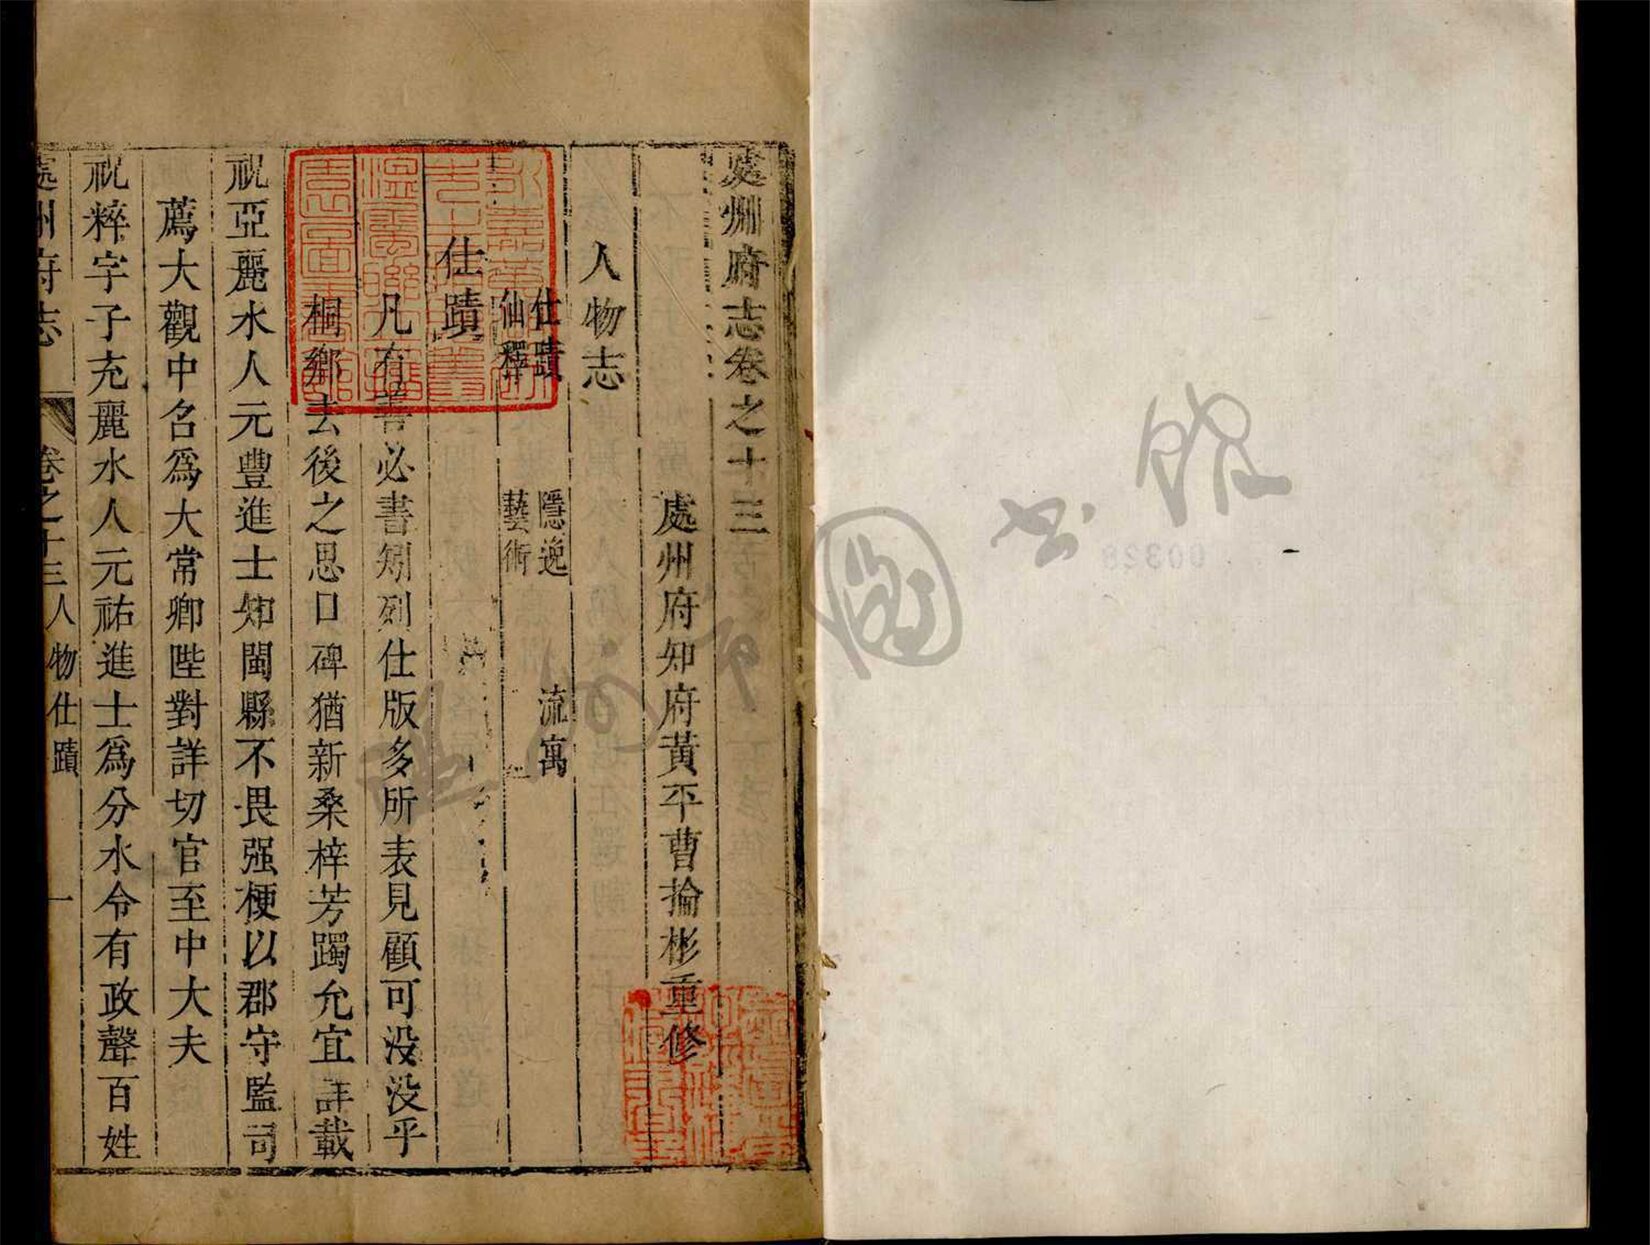 處州府志卷之十三
處州府知府黃平曹掄彬重修
人物志
仕蹟 隱逸 流寓
仙釋 藝術
仕蹟
凡有善必書矧列仕版多所表見顧可没没乎
桐鄉去後之思口碑猶新桑梓芳躅允宜詳載
祝亞麗水人元豐進士知閩縣不畏强梗以郡守監司
薦大觀中名爲大常卿陛對詳切官至中大夫
祝粹字子充麗水人元祐進士爲分水令有政聲百姓
處州府志 卷之十三人物仕蹟 一
圖
00328